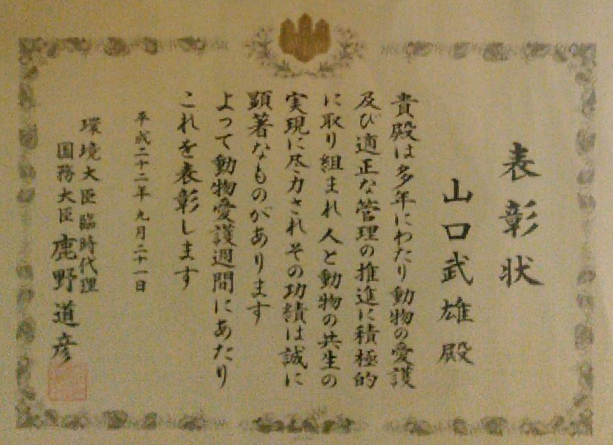 表彰状
山口武雄殿
貴殿は多年にわたり動物の愛護
及び適正な管理の推進に積極的
に取り組まれ人と動物の共生の
実現に尽力されその功績は誠に
顕著なものがあります
よって動物愛護週間にあたり
これを表彰します
平成二十二年九月二十一日
環境大臣臨時代理
国務大臣 鹿野道彦